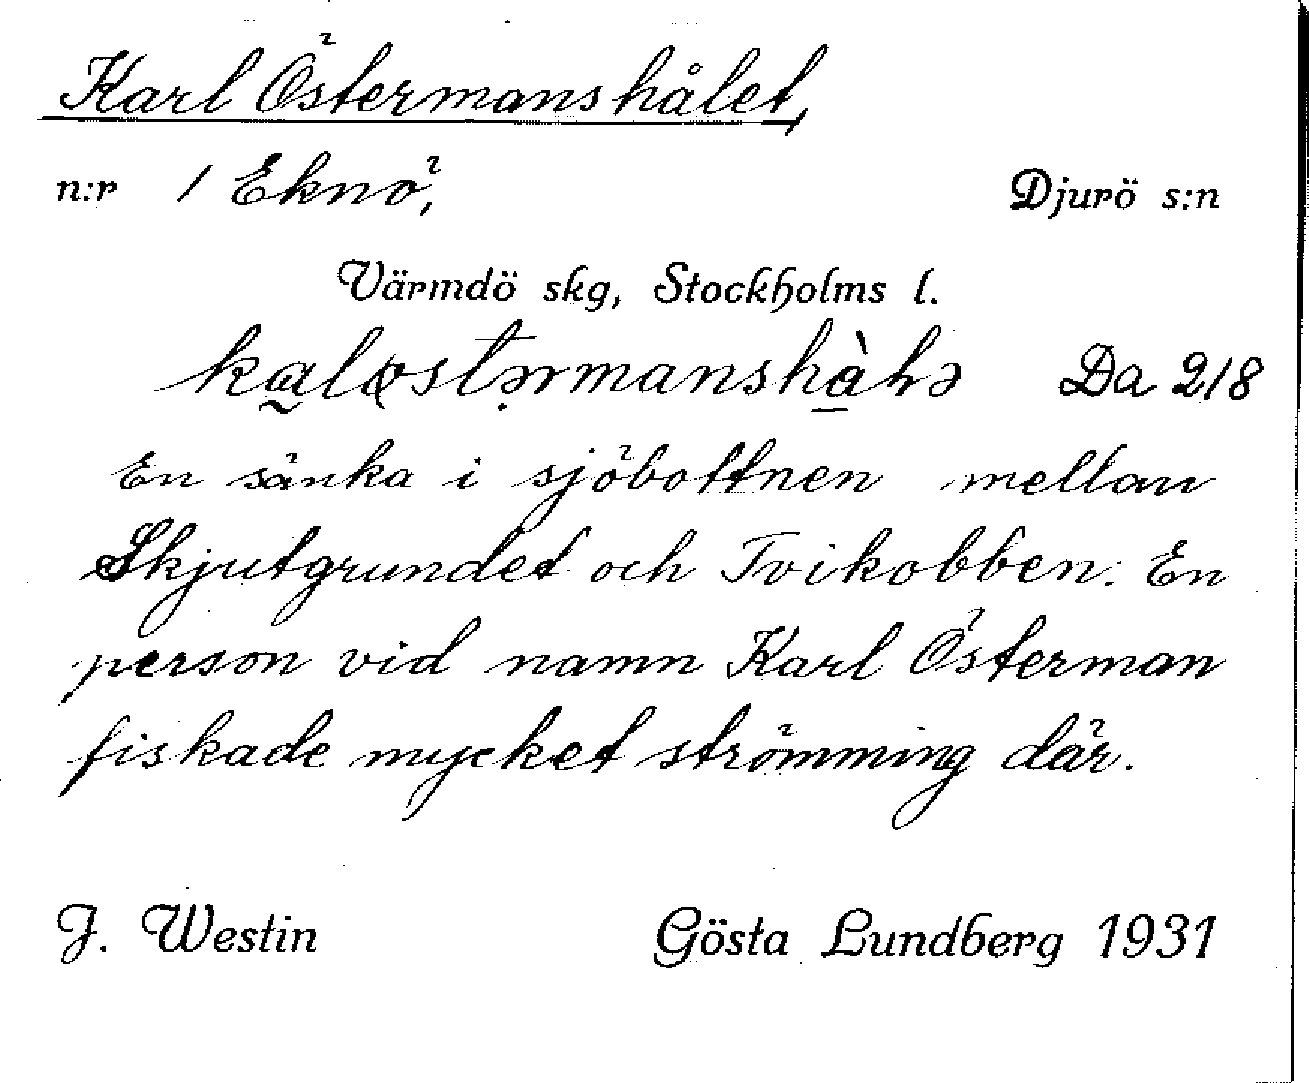 Karl Östermanshålet,
n:r 1 Eknö, Djurö s:n
Värmdö skg, Stockholms l.
Da 218
En sänka i sjöbottnen mellan
Skjutgrundet och Tvikobben. En
person vid namn Karl Österman
fiskade mycket strömming där.
J. Westin Gösta Lundberg 1931